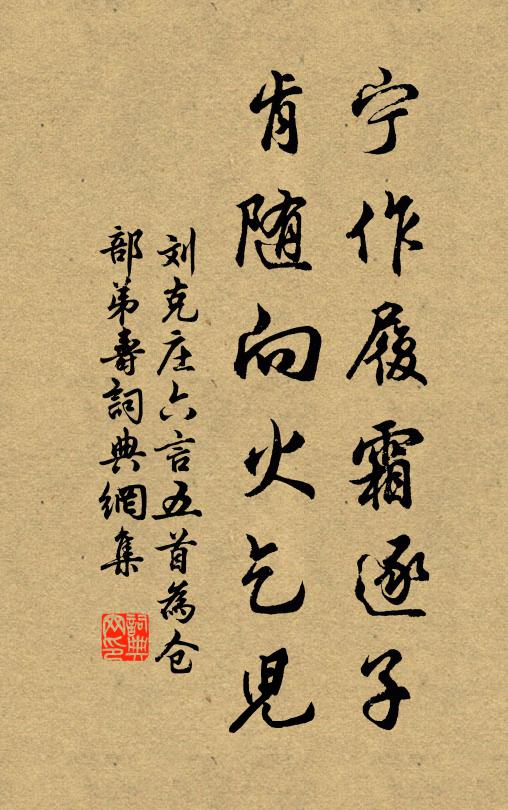 宁作履霜逐子
肯随向火乞児
刘克庄六言五首為仓
部弟壽詞典網集
詞典网印